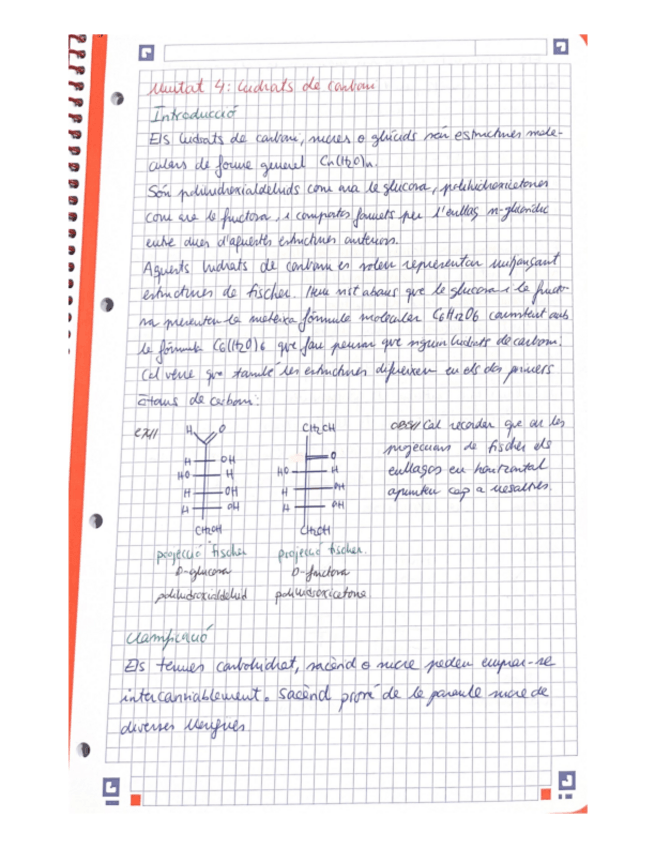 Unitat 4: hidrats de carboni
Introducció
Els hidrats de carboni, sucres o glúcids són estructures mole-
culars de forma general Cn(H2O)n.
Són polihidroxialdehids com ara la glucosa, polihidroxicetones
com ara la fructosa, i compostos formats per l'enllaç n-glucosídic
entre dues d'aquestes estructures anteriors.
Aquests hidrats de carboni es solen representar mitjançant
estructures de Fischer. Hem vist abans que la glucosa i la fructo-
sa presenten la mateixa fórmula molecular C6H12O6 coincident amb
la fórmula C6(H2O)6 que fan pensar que siguin hidrats de carboni.
Cal veure que també les estructures difereixen en els dos primers
àtoms de carboni:
ex//
H O
H OH
HO H
H OH
H OH
CH2OH
projecció Fischer
D-glucosa
polihidroxialdehid
CH2OH
O
HO H
H OH
H OH
CH2OH
projecció Fischer.
D-fructosa
polihidroxicetona
obs// Cal recordar que en les
projeccions de Fischer els
enllaços en horitzontal
apunten cap a nosaltres.
Classificació
Els termes carbohidrat, sacàrid o sucre poden emprar-se
intercanviablement. Sacàrid prové de la paraula sucre de
diverses llengües